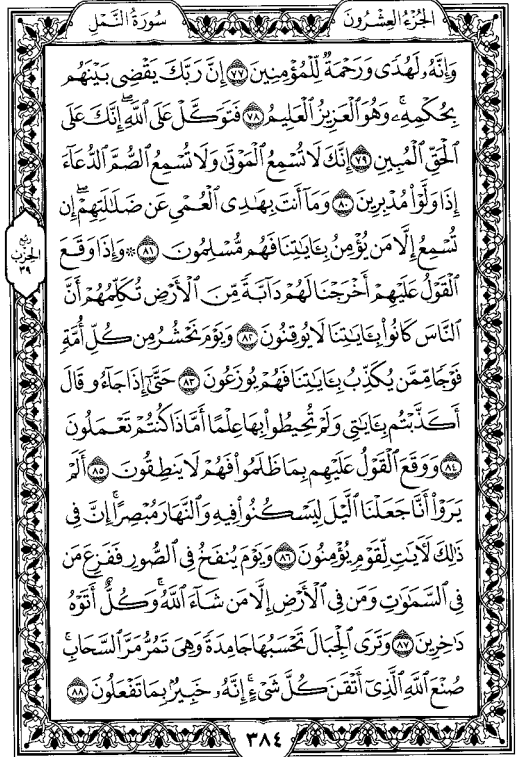 الجزء العشرون
سورة النمل
وَإِنَّهُۥ لَهُدًى وَرَحْمَةٌ لِّلْمُؤْمِنِينَ ٧٧ إِنَّ رَبَّكَ يَقْضِى بَيْنَهُم
بِحُكْمِهِۦ ۚ وَهُوَ ٱلْعَزِيزُ ٱلْعَلِيمُ ٧٨ فَتَوَكَّلْ عَلَى ٱللَّهِ ۖ إِنَّكَ عَلَى
ٱلْحَقِّ ٱلْمُبِينِ ٧٩ إِنَّكَ لَا تُسْمِعُ ٱلْمَوْتَىٰ وَلَا تُسْمِعُ ٱلصُّمَّ ٱلدُّعَآءَ
إِذَا وَلَّوْا۟ مُدْبِرِينَ ٨٠ وَمَآ أَنتَ بِهَٰدِى ٱلْعُمْىِ عَن ضَلَٰلَتِهِمْ ۖ إِن
تُسْمِعُ إِلَّا مَن يُؤْمِنُ بِـَٔايَٰتِنَا فَهُم مُّسْلِمُونَ ٨١ ۞ وَإِذَا وَقَعَ
ٱلْقَوْلُ عَلَيْهِمْ أَخْرَجْنَا لَهُمْ دَآبَّةً مِّنَ ٱلْأَرْضِ تُكَلِّمُهُمْ أَنَّ
ٱلنَّاسَ كَانُوا۟ بِـَٔايَٰتِنَا لَا يُوقِنُونَ ٨٢ وَيَوْمَ نَحْشُرُ مِن كُلِّ أُمَّةٍ
فَوْجًا مِّمَّن يُكَذِّبُ بِـَٔايَٰتِنَا فَهُمْ يُوزَعُونَ ٨٣ حَتَّىٰٓ إِذَا جَآءُو قَالَ
أَكَذَّبْتُم بِـَٔايَٰتِى وَلَمْ تُحِيطُوا۟ بِهَا عِلْمًا أَمَّاذَا كُنتُمْ تَعْمَلُونَ
٨٤ وَوَقَعَ ٱلْقَوْلُ عَلَيْهِم بِمَا ظَلَمُوا۟ فَهُمْ لَا يَنطِقُونَ ٨٥ أَلَمْ
يَرَوْا۟ أَنَّا جَعَلْنَا ٱلَّيْلَ لِيَسْكُنُوا۟ فِيهِ وَٱلنَّهَارَ مُبْصِرًا ۚ إِنَّ فِى
ذَٰلِكَ لَـَٔايَٰتٍ لِّقَوْمٍ يُؤْمِنُونَ ٨٦ وَيَوْمَ يُنفَخُ فِى ٱلصُّورِ فَفَزِعَ مَن
فِى ٱلسَّمَٰوَٰتِ وَمَن فِى ٱلْأَرْضِ إِلَّا مَن شَآءَ ٱللَّهُ ۚ وَكُلٌّ أَتَوْهُ
دَٰخِرِينَ ٨٧ وَتَرَى ٱلْجِبَالَ تَحْسَبُهَا جَامِدَةً وَهِىَ تَمُرُّ مَرَّ ٱلسَّحَابِ ۚ
صُنْعَ ٱللَّهِ ٱلَّذِىٓ أَتْقَنَ كُلَّ شَىْءٍ ۚ إِنَّهُۥ خَبِيرٌۢ بِمَا تَفْعَلُونَ ٨٨
ربع
الحزب
٣٩
٣٨٤